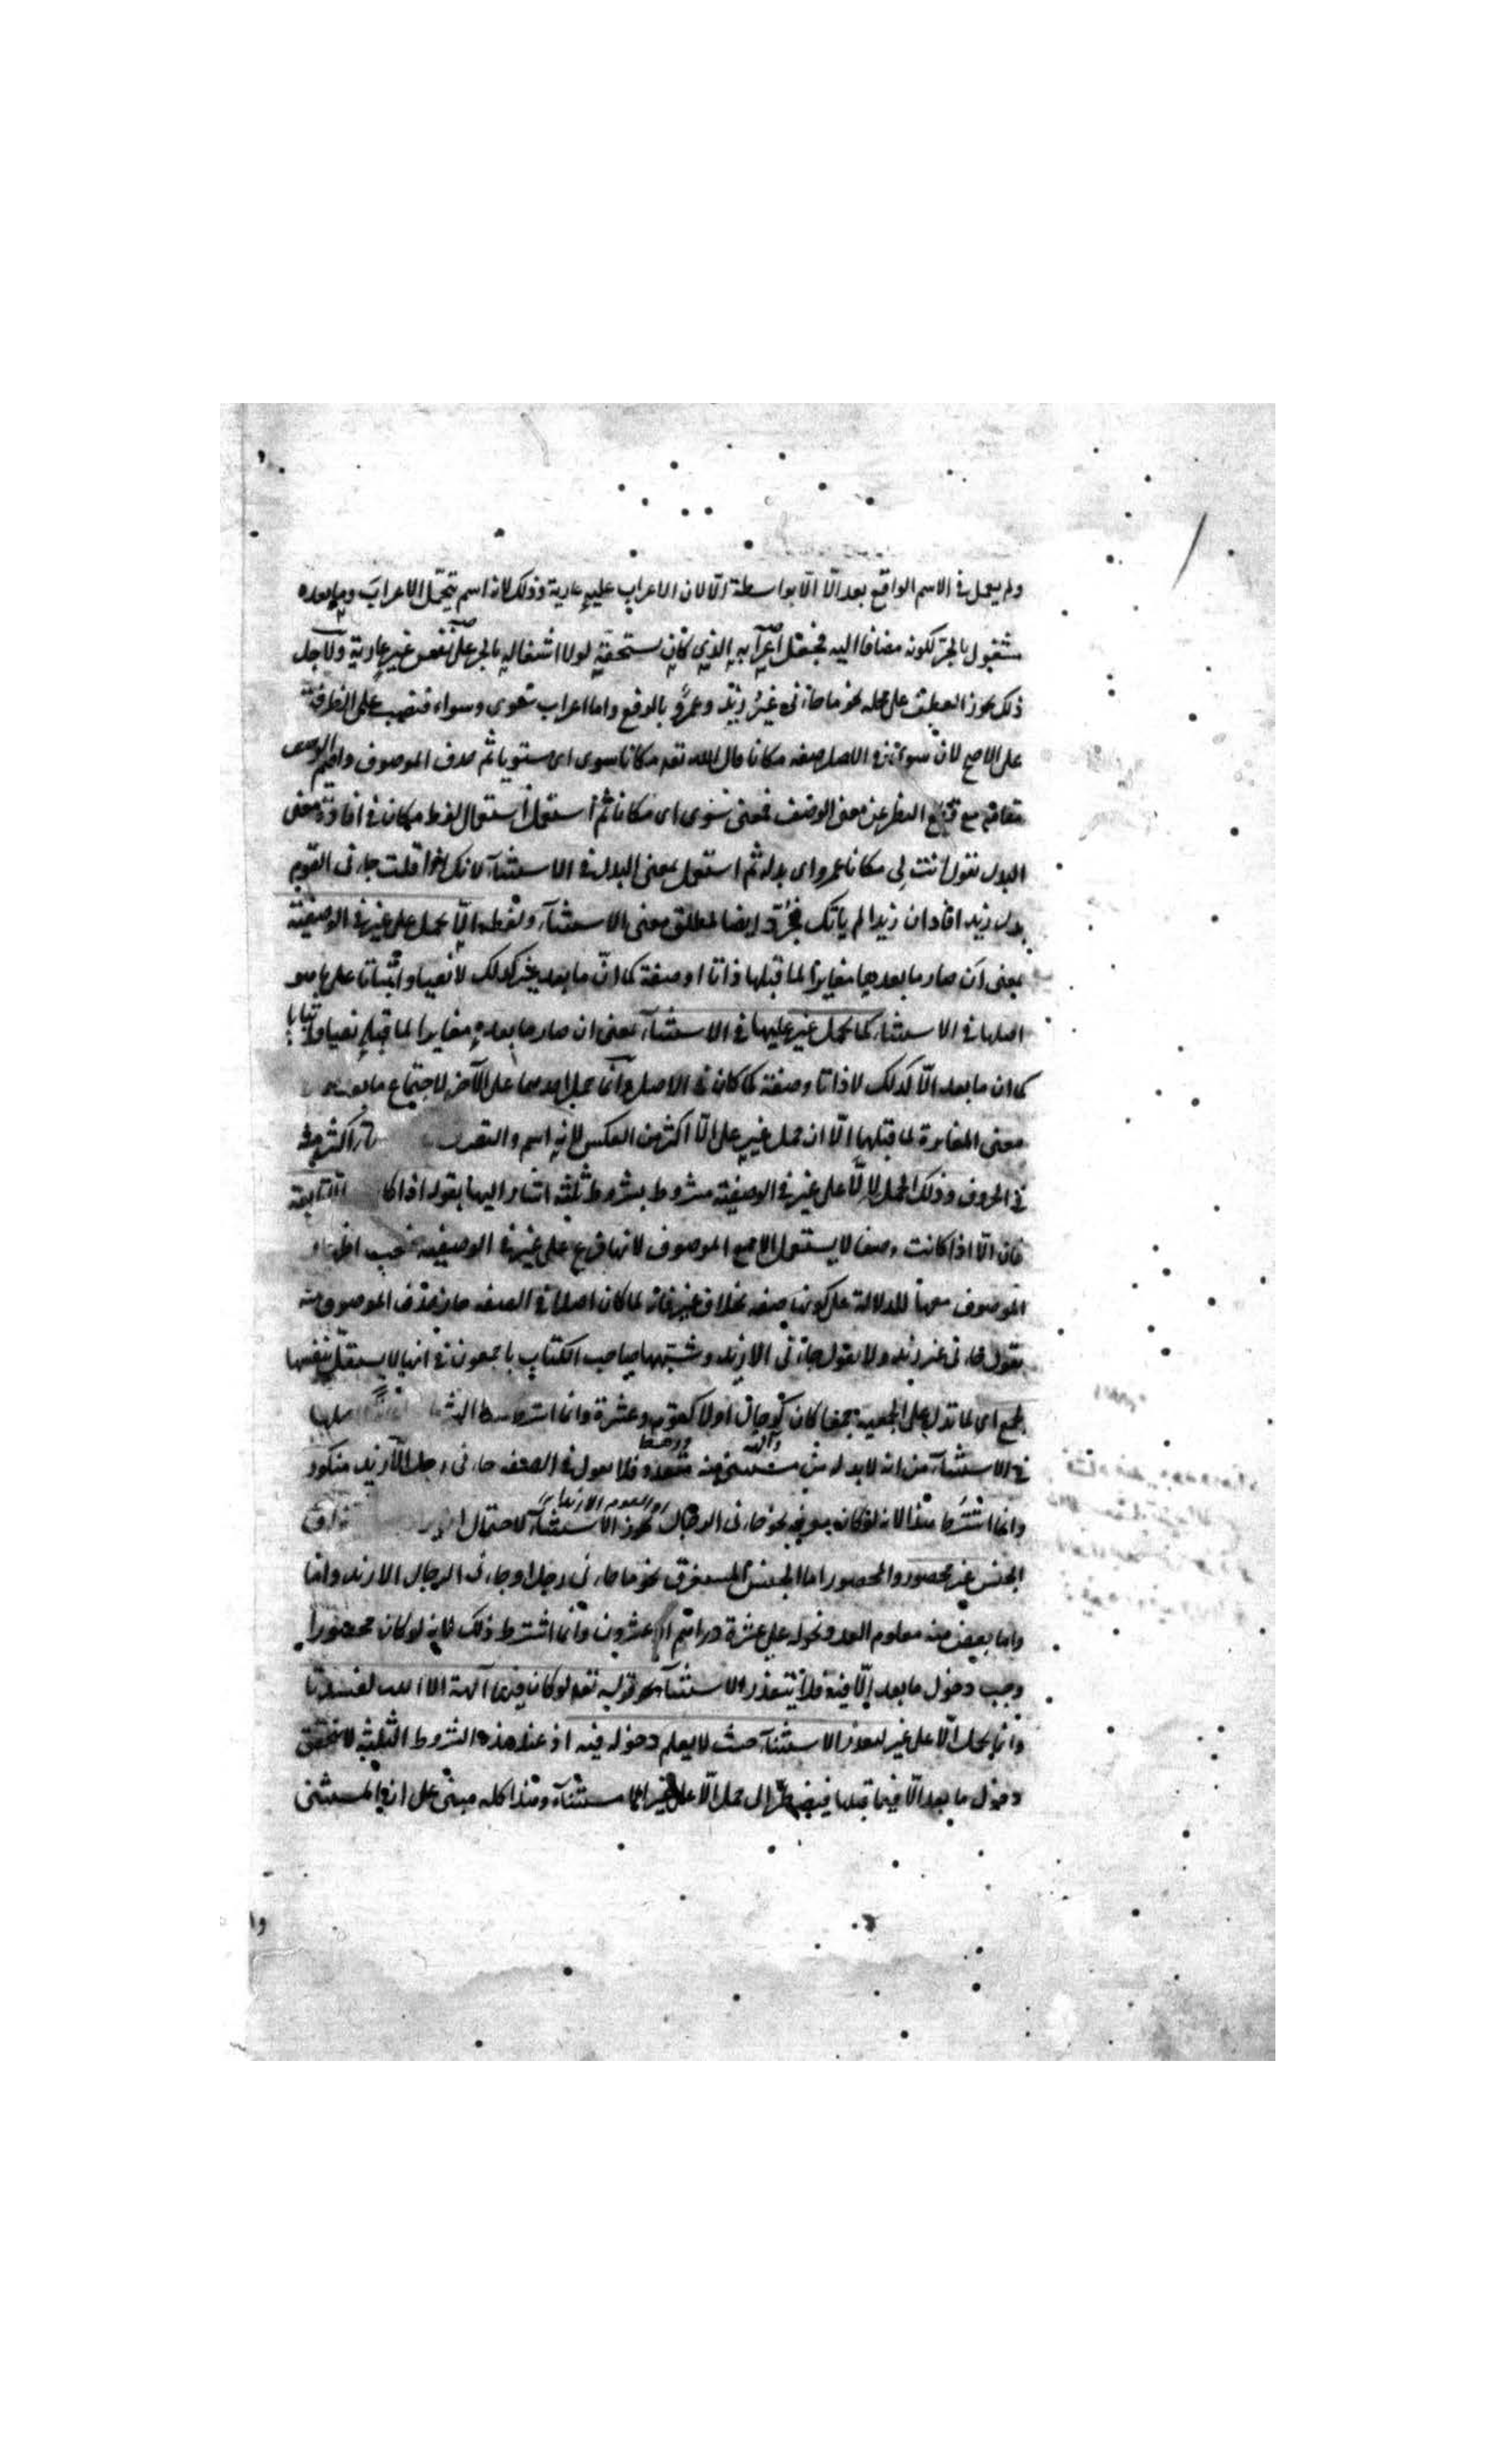 ولم يعمل في الاسم الواقع بعد الّا الّا بواسطة الّا لان الاعراب عليه عارية وذلك لانه اسم يتحمّل الاعراب وما بعده
مشغول بالجرّ لكونه مضافا اليه فجعل اعرابه الذي كان يستحقه لولا اشتغاله بالجر على نفس غير عارية ولاجل
ذلك يجوز العطف على محله نحو ما جاءنى غيرُ زيد وعمرٌو بالرفع واما اعراب سوى وسواء فنصب على الظرفية
على الاصح لانّ سوى في الاصل صفة مكانا قال الله تعه مكانا سوى اى مستويا ثم حذف الموصوف واقيم الوصف
مقامه مع قطع النظر عن معنى الوصف فمعنى سوى اى مكانا ثم استعمل استعمال لفظ مكان في افادة معنى
البدل تقول انت لى مكانا عمرو اى بدله ثم استعمل بمعنى البدل في الاستثناء لانك اذا قلت جاءنى القوم
بدل زيد افاد ان زيدا لم يأتك فجرّد ايضا لمطلق معنى الاستثناء ولفظه الّا يحمل على غير في الوصفية
بمعنى ان صار ما بعدها مغايرا لما قبلها ذاتا او صفة كما انّ ما بعد غير كذلك لا نفيا واثباتا على ما هو
اصلها في الاستثناء كما يحمل غير عليها في الاستثناء بمعنى ان صار ما بعده مغايرا لما قبله نفيا واثباتا
كما ان ما بعد الّا كذلك لا ذاتا وصفة كما كان في الاصل وانما يحمل احدهما على الآخر لاجتماع ما بعد
معنى المغايرة لما قبلها الّا ان حمل غير على الّا اكثر من العكس لانه اسم والتصرف اكثر منه
في الحروف وذلك الحمل لالّا على غير في الوصفية مشروط بشروط ثلثة اشار اليها بقوله اذا كا تابعة
فان الّا اذا كانت وصفا لا يستعمل الا مع الموصوف لانها فرع على غير في الوصفية فيجب اظهار
الموصوف معها للدلالة على كونها صفة بخلاف غير فانه لما كان اصلا في الصفة جاز حذف الموصوف منه
تقول جاءنى غير زيد ولا تقول جاءنى الا زيد وشبّهها صاحب الكتاب باجمعون في انها لا يستقل بنفسها
لجمع اى لما تدل على الجمعية جمعا كان كرجال اولا كقوم وعشرة وانما اشترط
في الاستثناء من انه لا بد له من مستثنى منه متعدد فلا تقول في الصفة جاءنى رجل الّا زيد منكور
وانما اشترط هذا لانه لو كان معرفه نحو جاءنى الرجال يجوز الاستثناء لاحتمال
الجنس غير محصور والمحصور اما الجنس المستغرق نحو ما جاءنى رجل او جاءنى الرجال الا زيد واما
واما بعض منه معلوم العدد نحو له على عشرة دراهم او عشرون وانما اشترط ذلك فانه لو كان محصورا
وجب دخول ما بعد إلّا فيه فلا يتعذر الاستثناء نحو قوله تعه لو كان فيهما آلهة الا الله لفسدتا
وانما يحمل الّا على غير لتعذر الاستثناء حيث لا يعلم دخوله فيه اذ عند هذه الشروط الثلثة لا يتحقق
دخول ما بعد الّا فيما قبلها فيضطرّ الى حمل الّا على غير استثناء وهذا كله مبنى على ان المستثنى